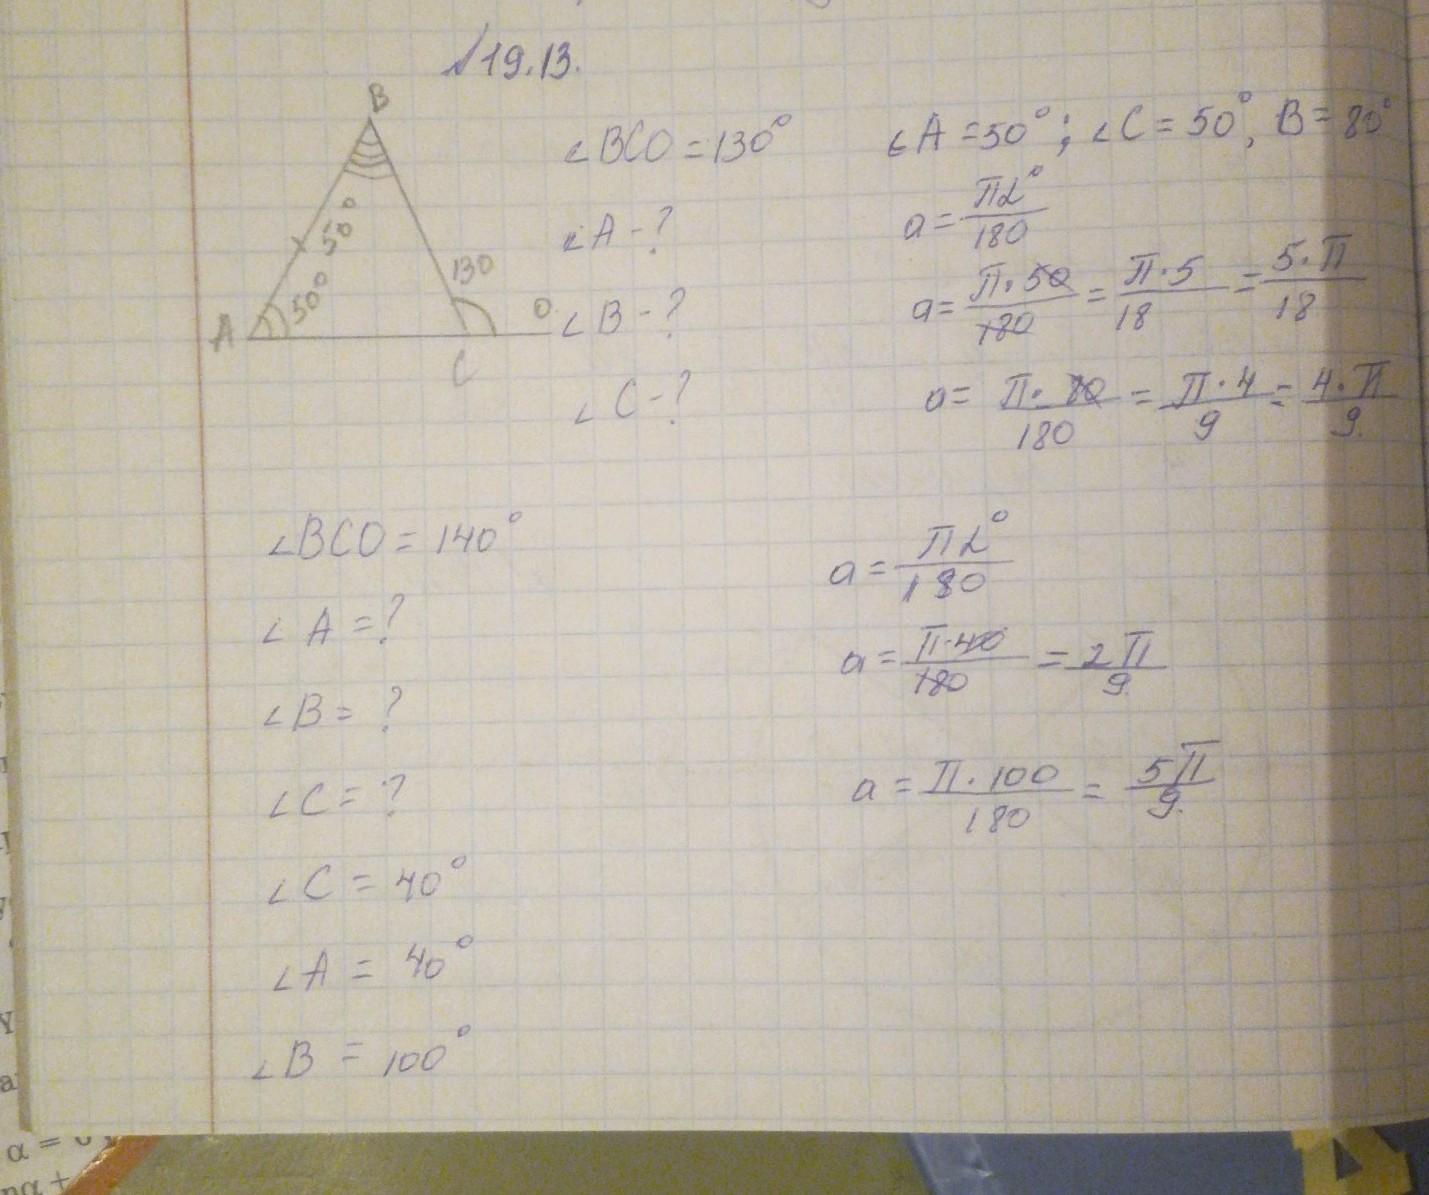 №19.13.
B
50°
50°
130
A
C
O
∠BCO = 130°
∠A - ?
∠B - ?
∠C - ?
∠A = 50° ; ∠C = 50°, B = 80°
a = πα°/180
a = π·50/180 = π·5/18 = 5·π/18
a = π·80/180 = π·4/9 = 4·π/9.
∠BCO = 140°
∠A = ?
∠B = ?
∠C = ?
∠C = 40°
∠A = 40°
∠B = 100°
a = πα°/180
a = π·40/180 = 2π/9.
a = π·100/180 = 5π/9.